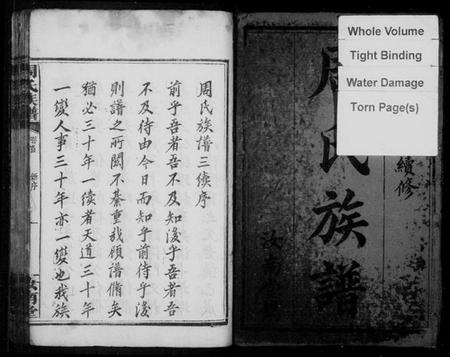 Whole Volume
Tight Binding
Water Damage
Torn Page(s)
周氏族譜
續修
汝南堂
周氏族譜三續序
前乎吾者吾不及知後乎吾者吾
不及待由今日而知乎前待乎後
則譜之所關不綦重哉顧譜脩矣
猶必三十年一續者天道三十年
一變人事三十年亦一變也我族
周氏族譜
新序
汝南堂